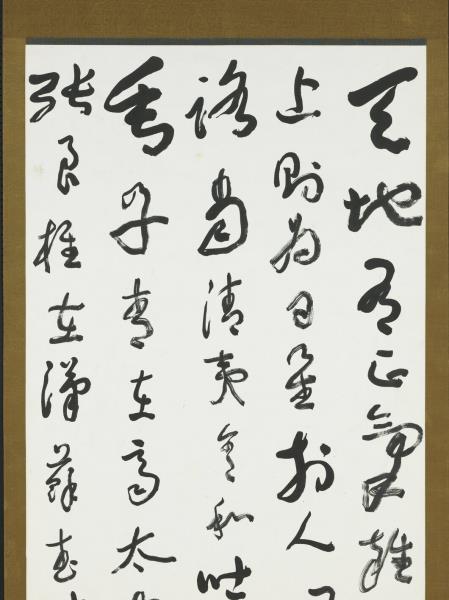 天地有正氣雜
上則為日星於人
路當清夷含和吐
垂丹青在齊太
張良椎在漢蘇武